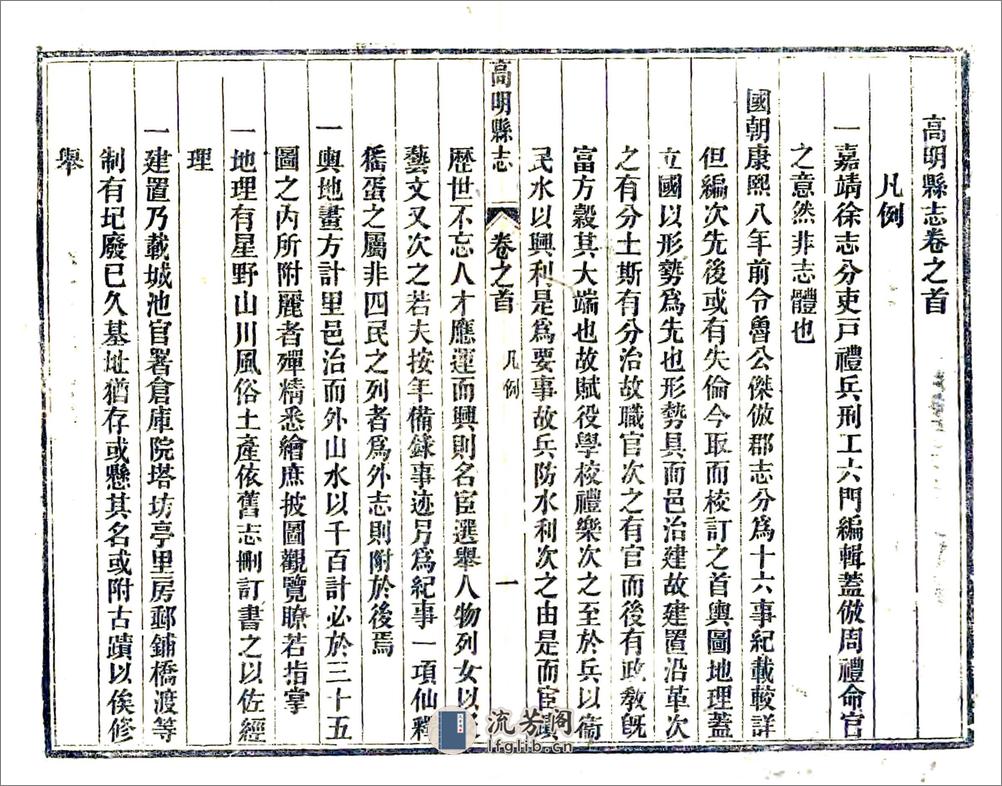 高明縣志卷之首
凡例
一嘉靖徐志分吏戸禮兵刑工六門編輯蓋倣周禮命官
之意然非志體也
國朝康熙八年前令魯公傑倣郡志分爲十六事紀載較詳
但編次先後或有失倫今取而校訂之首輿圖地理蓋
立國以形勢爲先也形勢具而邑治建故建置沿革次
之有分土斯有分治故職官次之有官而後有政敎旣
富方穀其大端也故賦役學校禮樂次之至於兵以衞
民水以興利是爲要事故兵防水利次之由是而宦
高明縣志
卷之首
凡例
一
歷世不忘人才應運而興則名宦選舉人物列女以
藝文又次之若夫按年備錄事迹另爲紀事一項仙釋
猺蛋之屬非四民之列者爲外志則附於後焉
一輿地畫方計里邑治而外山水以千百計必於三十五
圖之內所附麗者殫精悉繪庶披圖觀覽瞭若指掌
一地理有星野山川風俗土產依舊志刪訂書之以佐經
理
一建置乃載城池官署倉庫院塔坊亭里房郵鋪橋渡等
制有圮廢已久基址猶存或懸其名或附古蹟以俟修
舉
流芳閣
lfglib.cn